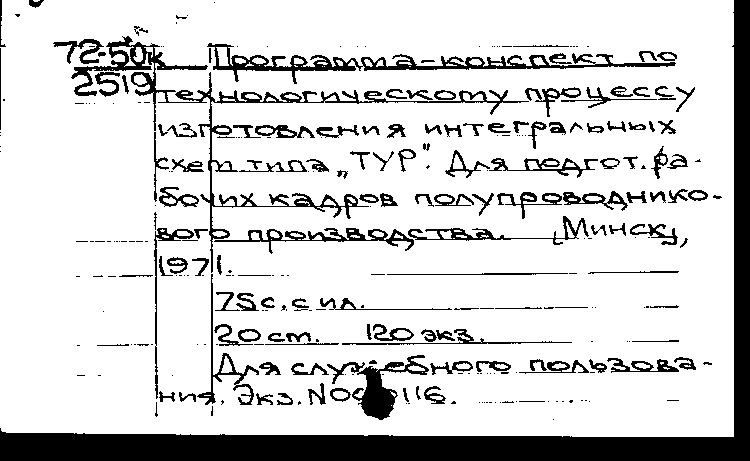 72-50к Программа-конспект по
2519 технологическому процессу
изготовления интегральных
схем типа „ТУР". Для подгот. ра-
бочих кадров полупроводнико-
вого производства. [Минск],
1971.
75 с. с ил.
20 см. 120 экз.
Для служебного пользова-
ния. Экз. №